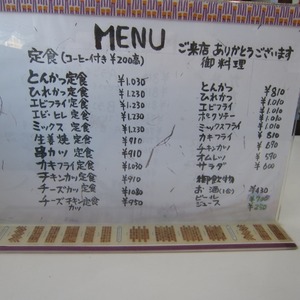 MENU
ご来店 ありがとうございます
定食 (コーヒー付き ¥200高)
御料理
とんかつ定食 ¥1.030
ひれかつ定食 ¥1.230
エビフライ定食 ¥1.230
エビ・ヒレ定食 ¥1.230
ミックス定食 ¥1.230
生姜焼定食 ¥910
串カツ定食 ¥910
カキフライ定食 ¥1.030
チキンカツ定食 ¥910
チーズカツ定食 ¥1.080
チーズチキンカツ定食 ¥950
とんかつ ¥810
ひれかつ ¥1.010
エビフライ ¥1.010
ポークソテー ¥1.010
ミックスフライ ¥1.010
カキフライ ¥810
チキンカツ ¥690
オムレツ ¥590
サラダ ¥600
御飲物
お酒
ビール
ジュース ¥250